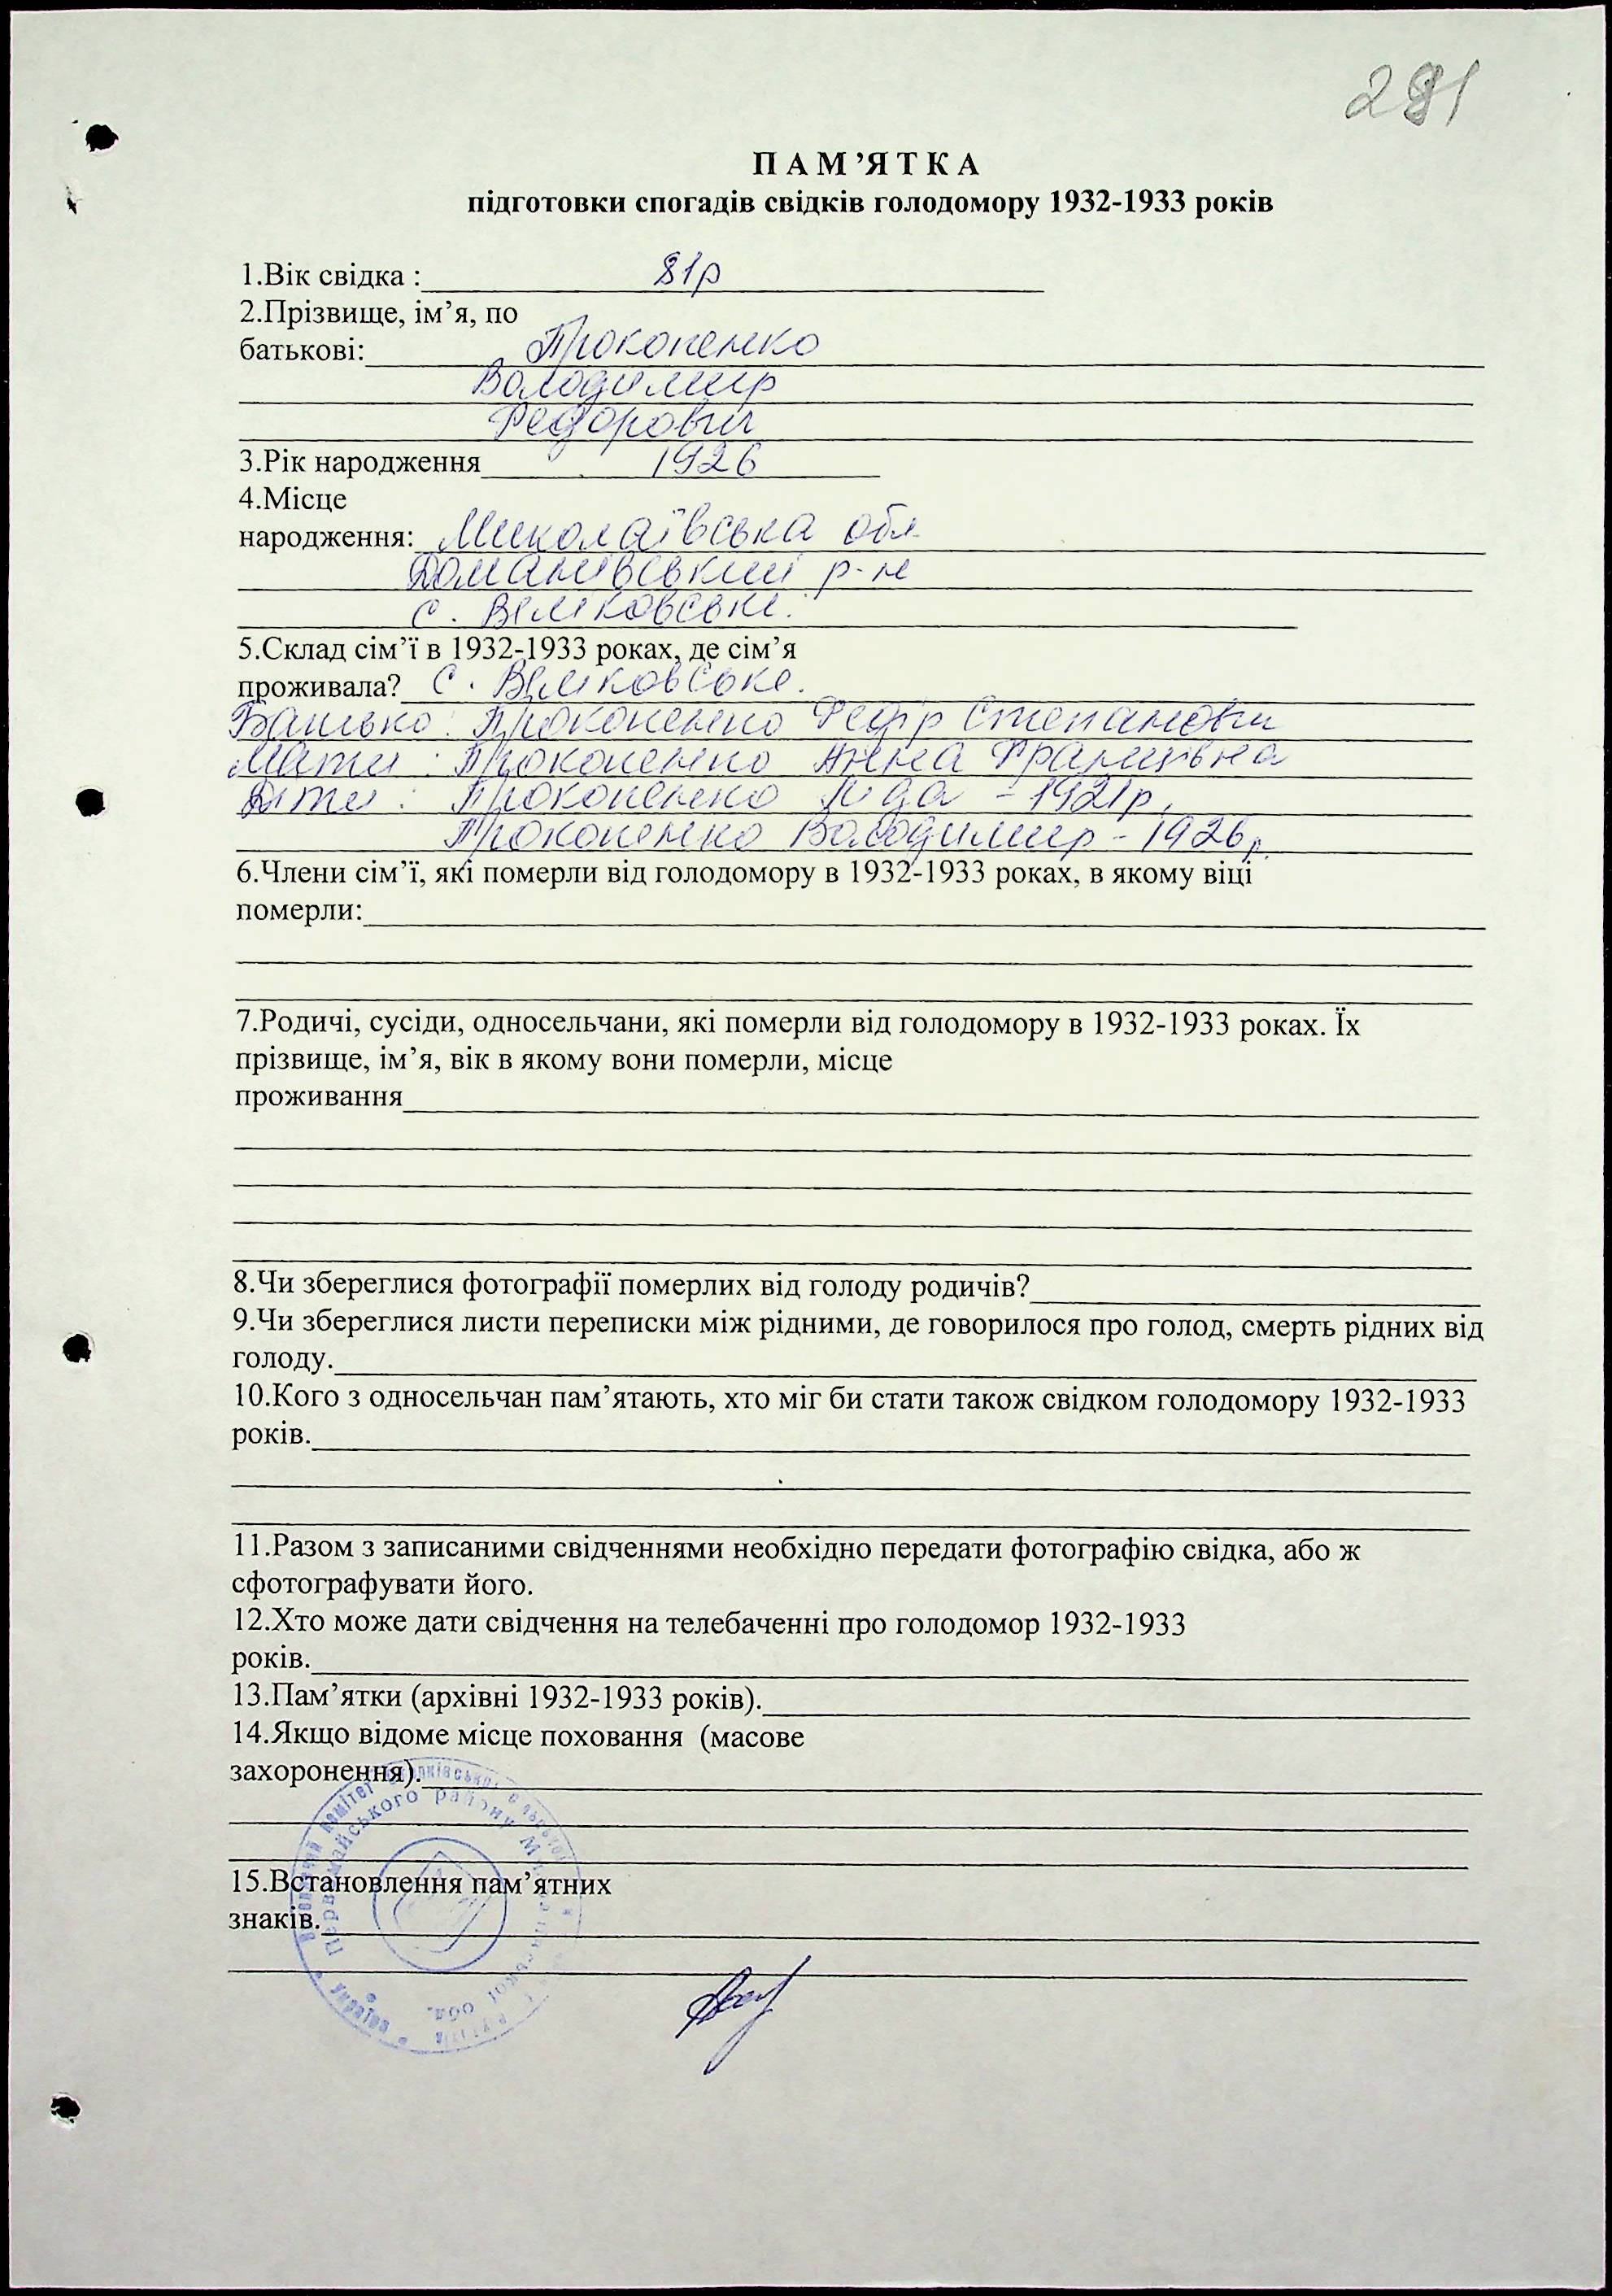 281
П А М ’Я Т К А
підготовки спогадів свідків голодомору 1932-1933 років
1.Вік свідка : 81р
2.Прізвище, ім’я, по
батькові: Прокопенко
Володимир
Федорович
3.Рік народження 1926
4.Місце
народження: Миколаївська обл.
Доманівський р-н
с.
5.Склад сім’ї в 1932-1933 роках, де сім’я
проживала? с.
Батько: Прокопенко Федір Степанович
Мати: Прокопенко Анна Францівна
Діти: Прокопенко Ліда - 1921р.
Прокопенко Володимир - 1926р.
6.Члени сім’ї, які померли від голодомору в 1932-1933 роках, в якому віці
померли:
7.Родичі, сусіди, односельчани, які померли від голодомору в 1932-1933 роках. Їх
прізвище, ім’я, вік в якому вони померли, місце
проживання
8.Чи збереглися фотографії померлих від голоду родичів?
9.Чи збереглися листи переписки між рідними, де говорилося про голод, смерть рідних від
голоду.
10.Кого з односельчан пам’ятають, хто міг би стати також свідком голодомору 1932-1933
років.
11.Разом з записаними свідченнями необхідно передати фотографію свідка, або ж
сфотографувати його.
12.Хто може дати свідчення на телебаченні про голодомор 1932-1933
років.
13.Пам’ятки (архівні 1932-1933 років).
14.Якщо відоме місце поховання (масове
захоронення).
15.Встановлення пам’ятних
знаків.
Первомайського району Миколаївської обл.
Україна